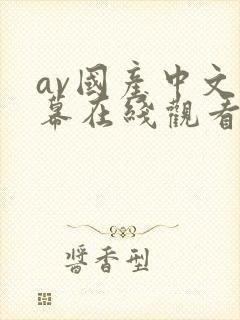 av國産中文
幕在綫觀看
醬香型